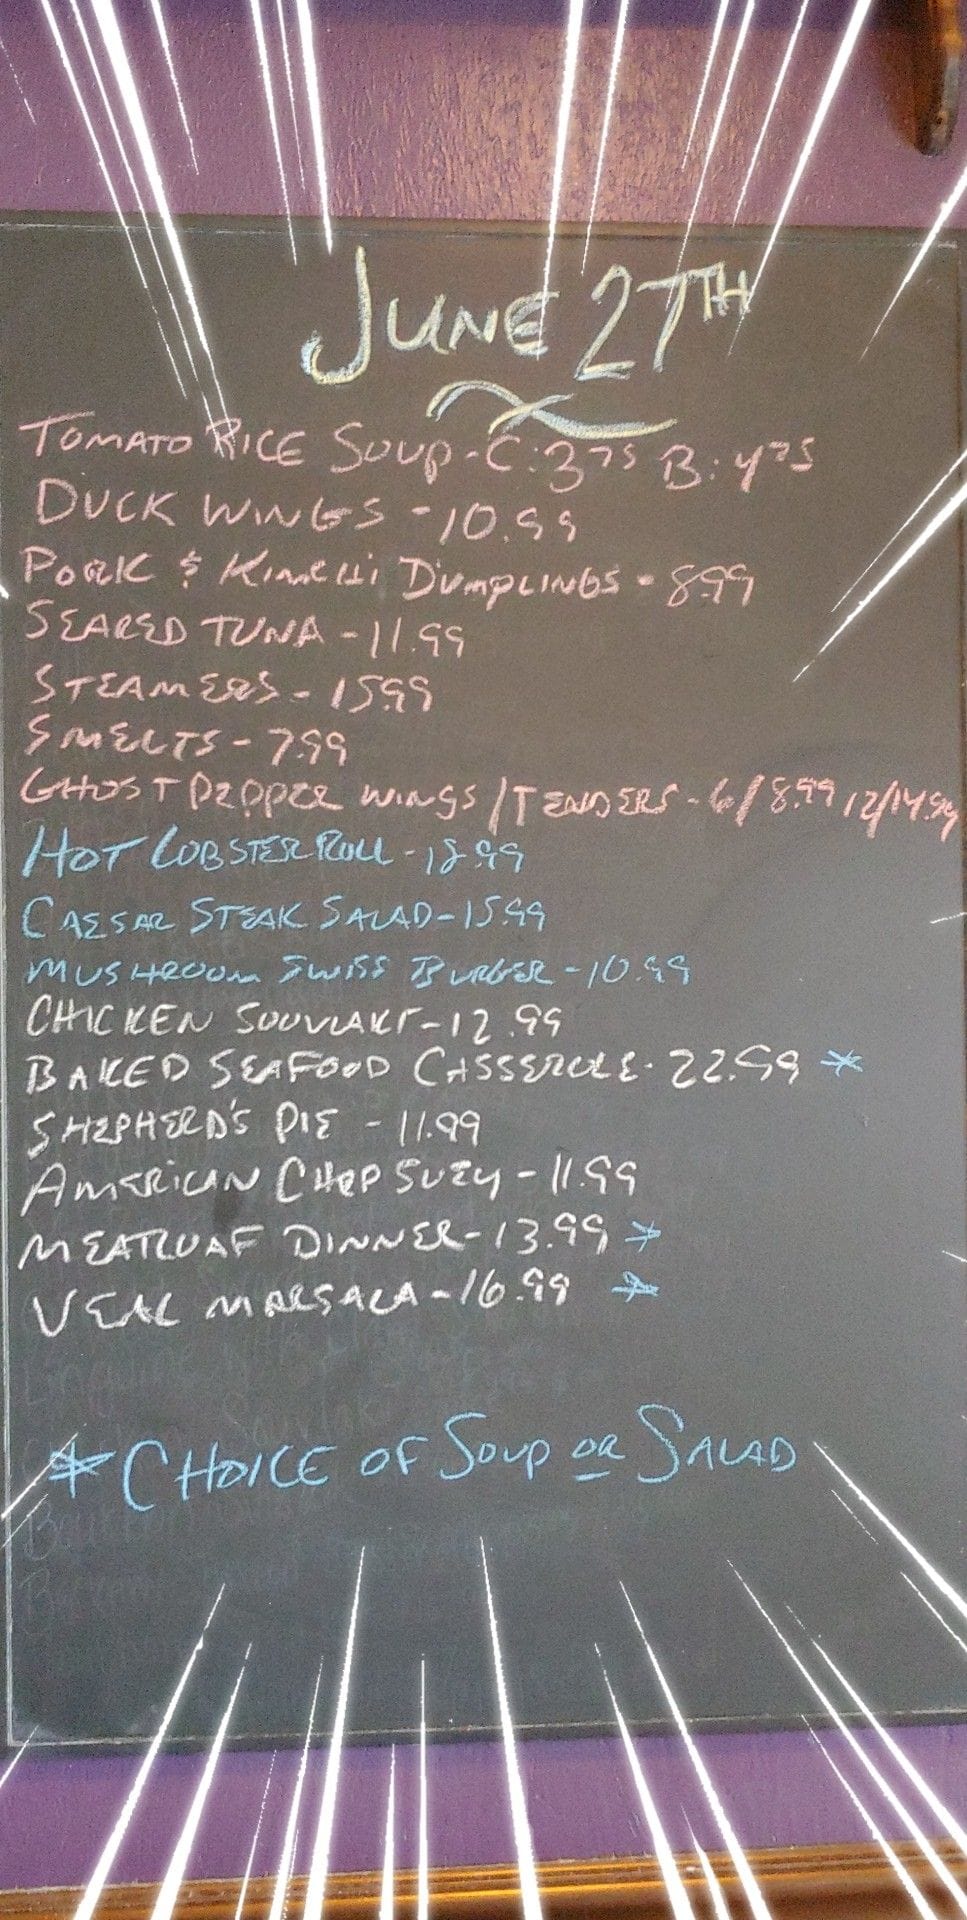 JUNE 27TH
TOMATO RICE SOUP - C: 3.75 B: 4.75
DUCK WINGS - 10.99
PORK & KIMCHI DUMPLINGS - 8.99
SEARED TUNA - 11.99
STEAMERS - 15.99
SMELTS - 7.99
GHOST PEPPER WINGS / TENDERS - 6/8.99 12/14.99
HOT LOBSTER ROLL - 18.99
CAESAR STEAK SALAD - 15.99
MUSHROOM SWISS BURGER - 10.99
CHICKEN SOUVLAKI - 12.99
BAKED SEAFOOD CASSEROLE - 22.99 *
SHEPHERD'S PIE - 11.99
AMERICAN CHOP SUEY - 11.99
MEATLOAF DINNER - 13.99 *
VEAL MARSALA - 16.99 *
* CHOICE OF SOUP OR SALAD